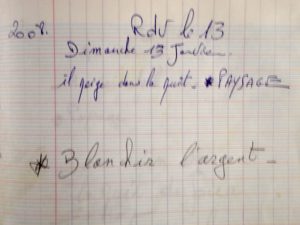 2008. Rdv le 13
Dimanche 13 Janvier.
il neige dans la nuit. * PAYSAGE
* Blanchir l'argent -